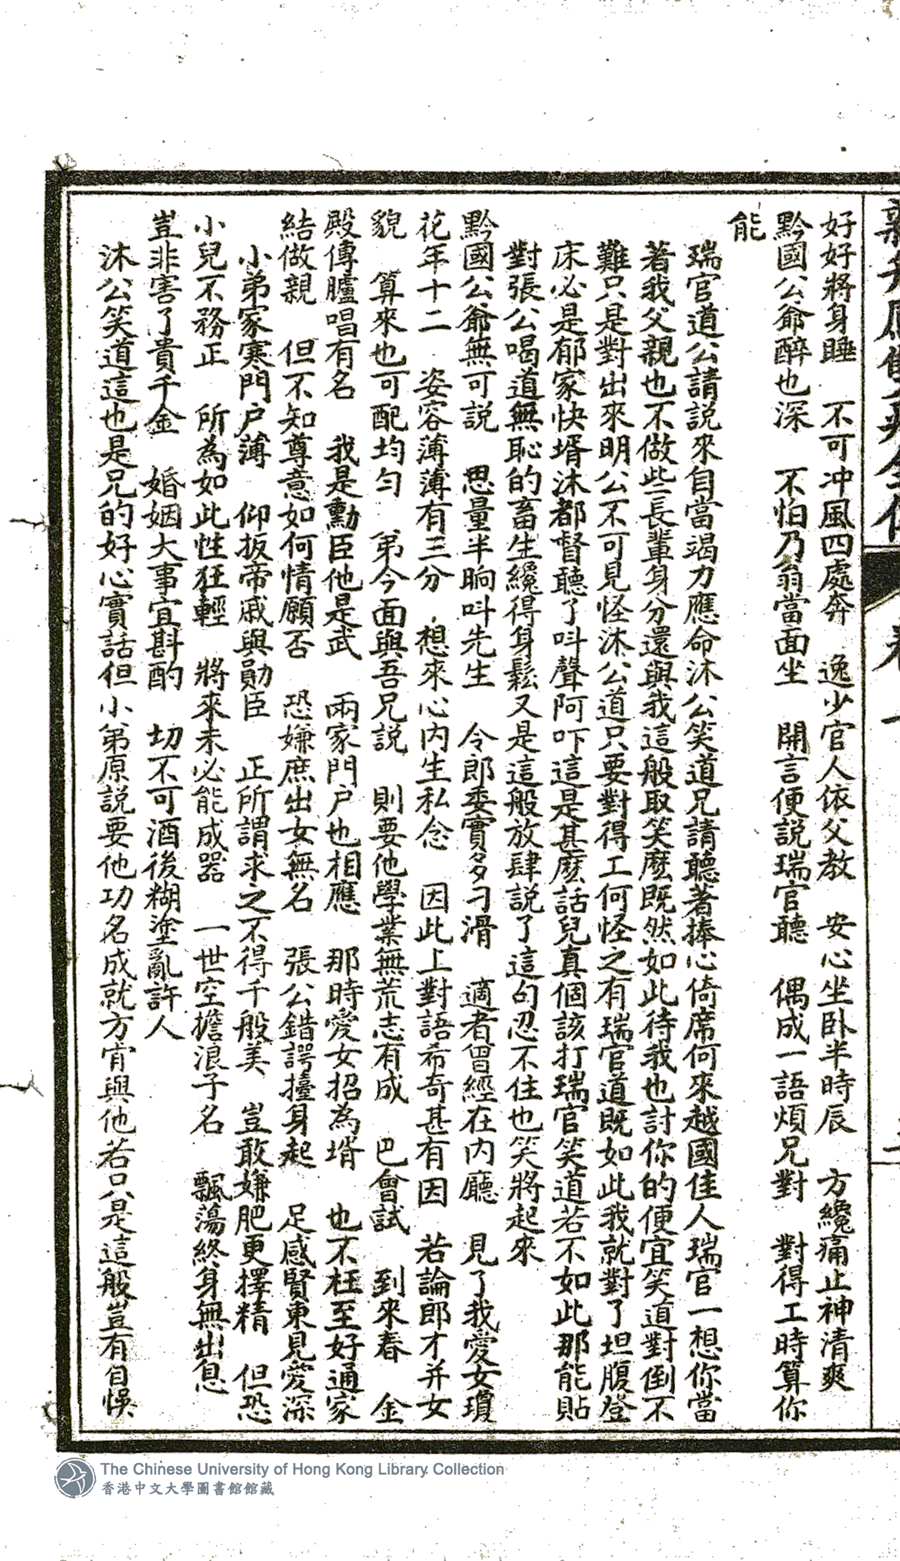 好好將身睡　不可冲風四處奔　逸少官人依父教　安心坐卧半時辰　方纔痛止神清爽
黔國公爺醉也深　不怕乃翁當面坐　開言便説瑞官聽　偶成一語煩兄對　對得工時算你
能
瑞官道公請説來自當竭力應命沐公笑道兄請聽著捧心倚席何來越國佳人瑞官一想你當
着我父親也不做些長輩身分還與我這般取笑麽既然如此待我也討你的便宜笑道對倒不
難只是對出來明公不可見怪沐公道只要對得工何怪之有瑞官道既如此我就對了坦腹登
床必是郁家快壻沐都督聽了叫聲阿吓這是甚麽話兒真個該打瑞官笑道若不如此那能貼
對張公喝道無恥的畜生纔得身鬆又是這般放肆説了這句忍不住也笑將起來
黔國公爺無可説　思量半晌叫先生　令郎委實多刁滑　適者曾經在内廳　見了我愛女瓊
花年十二　姿容薄薄有三分　想來心内生私念　因此上對語希奇甚有因　若論郎才并女
貌　算來也可配均匀　弟今面與吾兄説　則要他學業無荒志有成　巴會試　到來春　金
殿傳臚唱有名　我是勳臣他是武　兩家門户也相應　那時愛女招為壻　也不枉至好通家
結做親　但不知尊意如何情願否　恐嫌庶出女無名　張公錯諤擡身起　足感賢東見愛深
小弟家寒門户薄　仰扳帝戚與勛臣　正所謂求之不得千般美　豈敢嫌肥更擇精　但恐
小兒不務正　所為如此性狂輕　將來未必能成器　一世空擔浪子名　飄蕩終身無出息
豈非害了貴千金　婚姻大事宜斟酌　切不可酒後糊塗亂許人
沐公笑道這也是兄的好心實話但小弟原説要他功名成就方肯與他若只是這般豈有自悞
The Chinese University of Hong Kong Library Collection
香港中文大學圖書館館藏